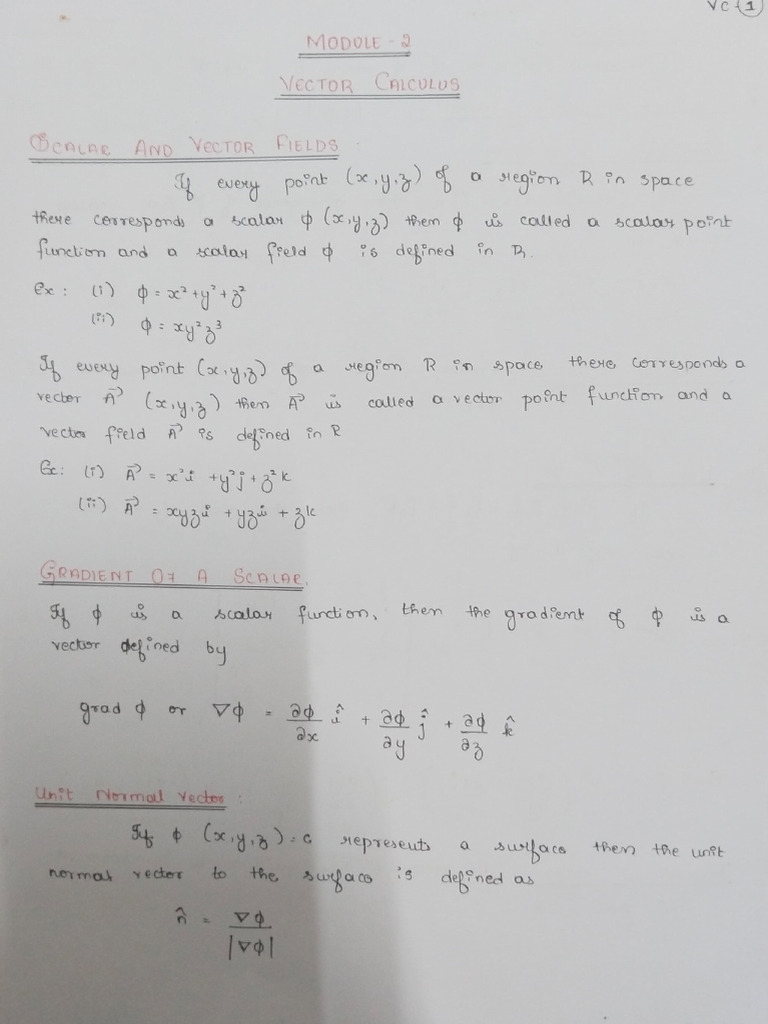 VC-(1)
MODULE - 2
VECTOR CALCULUS
SCALAR AND VECTOR FIELDS :
If every point (x,y,z) of a region R in space
there corresponds a scalar ϕ (x,y,z) then ϕ is called a scalar point
function and a scalar field ϕ is defined in R.
Ex : (i) ϕ = x² + y² + z²
(ii) ϕ = xy²z³
If every point (x,y,z) of a region R in space there corresponds a
vector A⃗ (x,y,z) then A⃗ is called a vector point function and a
vector field A⃗ is defined in R
Ex: (i) A⃗ = x²i + y²j + z²k
(ii) A⃗ = xyzi + yzi + zk
GRADIENT OF A SCALAR.
If ϕ is a scalar function, then the gradient of ϕ is a
vector defined by
grad ϕ or ∇ϕ = ∂ϕ/∂x î + ∂ϕ/∂y ĵ + ∂ϕ/∂z k̂
Unit Normal Vector :
If ϕ (x,y,z) = c represents a surface then the unit
normal vector to the surface is defined as
n̂ = ∇ϕ/|∇ϕ|